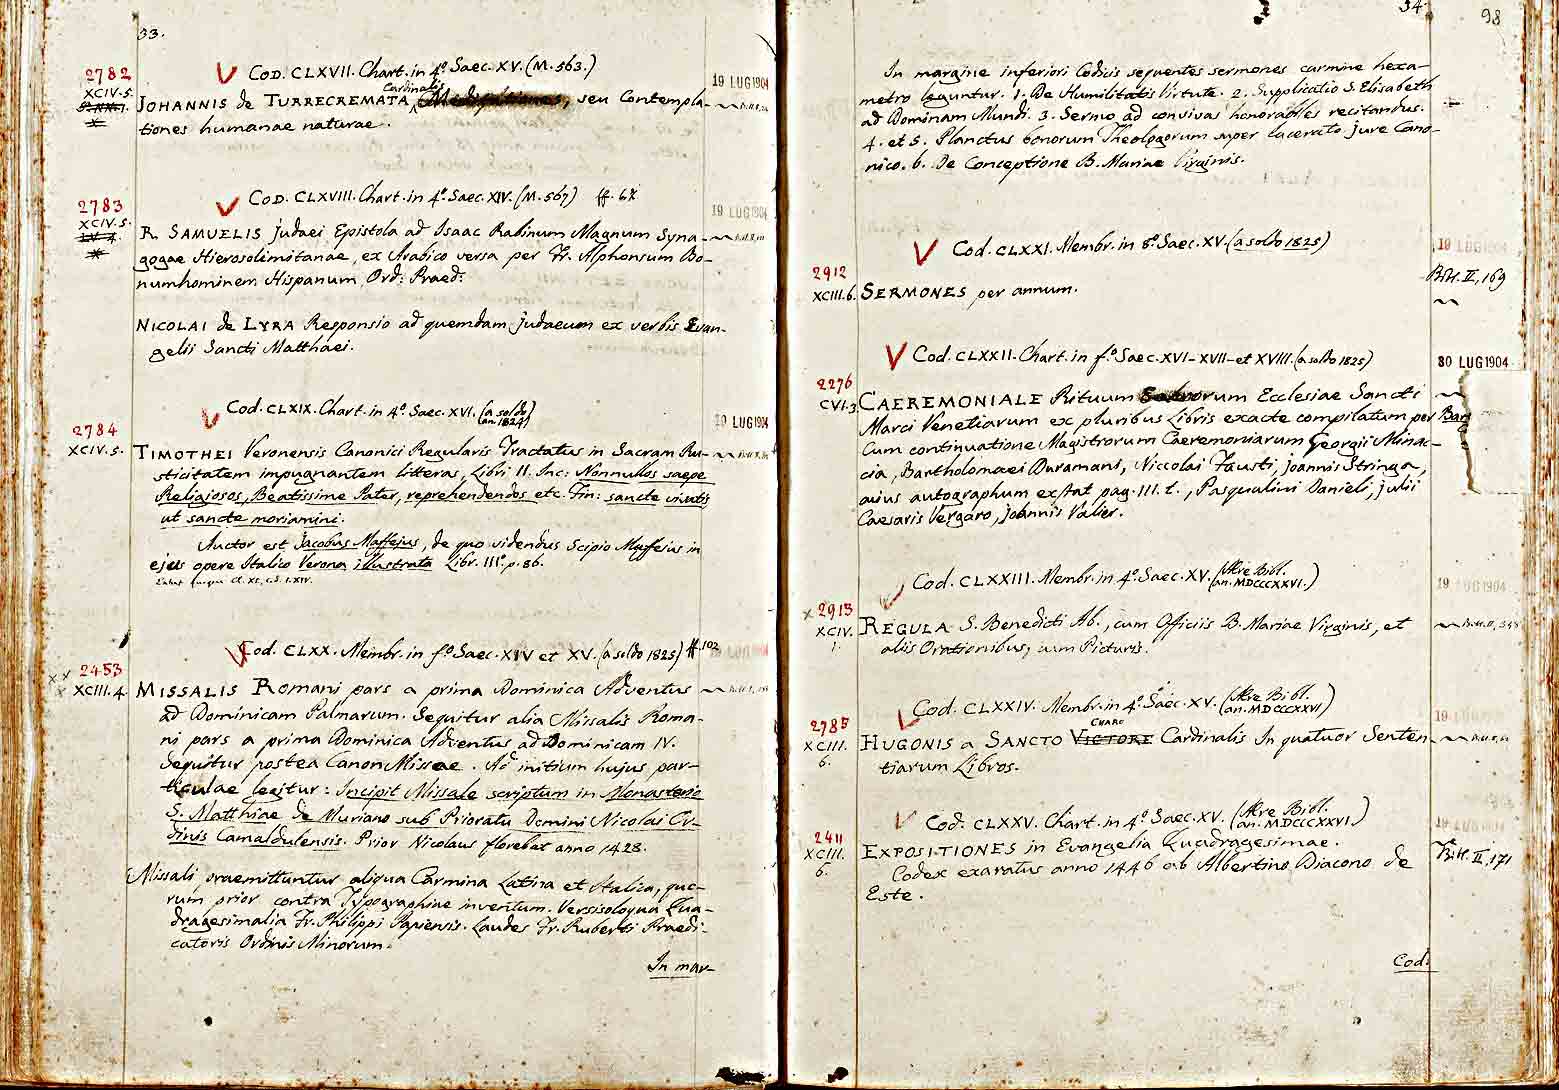 33.
2782
XCIV. 5.
COD. CLXVII. Chart. in 4.º Saec. XV. (M. 563.)
19 LUG 1904
Cardinalis
JOHANNIS de TURRECREMATA, Meditationes, seu Contempla-
tiones humanae naturae.
2783
XCIV. 5.
COD. CLXVIII. Chart. in 4.º Saec. XIV. (M. 567)
19 LUG 1904
R. SAMUELIS Judaei Epistola ad Isaac Rabinum Magnum Syna-
gogae Hierosolimitanae, ex Arabico versa per Fr. Alphonsum Bo-
numhominem Hispanum, Ord: Praed:
NICOLAI de LYRA Responsio ad quemdam Judaeum ex verbis Evan-
gelii Sancti Matthaei.
2784
XCIV. 5.
Cod. CLXIX. Chart. in 4.º Saec. XVI. (a soldo
an. 1824)
19 LUG 1904
TIMOTHEI Veronensis Canonici Regularis Tractatus in Sacram Ru-
sticitatem impugnantem litteras, Libri II. Inc: Nonnullos saepe
Religiosos, Beatissime Pater, reprehendendos etc. Fin: sancte vivatis
ut sancte moriamini.
Auctor est Jacobus Maffejus, de quo videndus Scipio Maffejus in
ejus opere Italico Verona illustrata Libr. IIIº. p. 86.
2453
XCIII. 4.
Cod. CLXX. Membr. in fº. Saec. XIV et XV. (a soldo 1825) ff. 102
MISSALIS Romani pars a prima Dominica Adventus
ad Dominicam Palmarum. Sequitur alia Missalis Roma-
ni pars a prima Dominica Adventus ad Dominicam IV.
Sequitur postea Canon Missae. Ad initium hujus par-
ticulae legitur: Incipit Missale scriptum in Monasterio
S. Matthiae de Muriano sub Prioratu Domini Nicolai Cu-
dinis Camaldulensis. Prior Nicolaus florebat anno 1428.
Missali praemittuntur aliqua Carmina Latina et Italica, quo-
rum prior contra Typographiae inventum. Versiloqua Qua-
dragesimalia Fr. Philippi Papiensis. Laudes Fr. Ruberti Praedi-
catoris Ordinis Minorum.
In mar-
34.
98
In margine inferiori Codicis sequentes sermones carmine hexa-
metro leguntur. 1. De Humilitatis Virtute. 2. Supplicatio S. Elisabeth
ad Dominam Mundi. 3. Sermo ad convivas honorabiles recitandus.
4. et 5. Planctus bonorum Theologorum super lacerato jure Cano-
nico. 6. De Conceptione B. Mariae Virginis.
2912
XCIII. 6.
Cod. CLXXI. Membr. in 8.º Saec. XV. (a soldo 1825)
19 LUG 1904
Bibl. II, 169
SERMONES per annum.
2276
CVI. 3
Cod. CLXXII. Chart. in fº. Saec. XVI- XVII- et XVIII. (a soldo 1825)
30 LUG 1904
CAEREMONIALE Rituum Sacrorum Ecclesiae Sancti
Marci Venetiarum ex pluribus Libris exacte compilatum per Bar
Cum continuatione Magistrorum Caeremoniarum Georgii Minac-
cia, Bartholomaei Duramani, Niccolai Fausti, Joannis Stringa,
cujus autographum exstat pag. III. t., Pasqualini Danieli, Julii
Caesaris Vergaro, Joannis Valier.
2913
XCIV.
1.
Cod. CLXXIII. Membr. in 4.º Saec. XV. (Aere Bibl.
an. MDCCCXXVI.)
19 LUG 1904
REGULA S. Benedicti Ab., cum Officiis B. Mariae Virginis, et
aliis Orationibus, cum Picturis.
2785
XCIII.
6.
Cod. CLXXIV. Membr. in 4.º Saec. XV. (Aere Bibl.
an. MDCCCXXVI)
CHARO
HUGONIS a SANCTO VICTORE Cardinalis In quatuor Senten-
tiarum Libros.
2411
XCIII.
6.
Cod. CLXXV. Chart. in 4.º Saec. XV. (Aere Bibl.
an. MDCCCXXVI.)
Bibl. II, 171
EXPOSITIONES in Evangelia Quadragesimae.
Codex exaratus anno 1446 ab Albertino Diacono de
Este.
Cod.